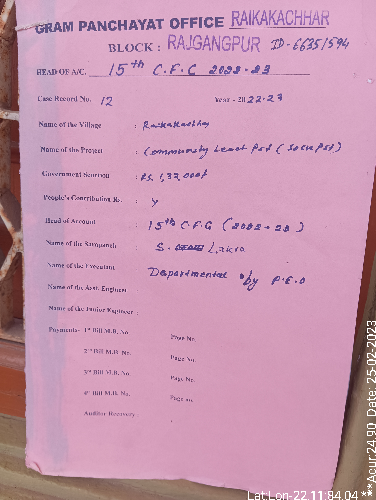 GRAM PANCHAYAT OFFICE RAIKAKACHHAR
BLOCK : RAJGANGPUR ID-66351594
HEAD OF A/C. 15th C.F.C 2022-23
Case Record No. 12 Year - 2022-23
Name of the Village : Raikakachhar
Name of the Project : Community Leach Pit (Sock Pit)
Government Scection : RS. 1,32,000/-
People's Contribution Rs. : y
Head of Account : 15th C.F.C (2022-23)
Name of the Sarapanch : S. Lakra
Name of the Executant Departmental by P.E.O
Name of the Asst. Engineer
Name of the Junior Engineer :
Payments- 1st Bill M.B. No. Page No.
2nd Bill M.B. No. Page No.
3rd Bill M.B. No. Page No.
4th Bill M.B. No. Page No.
Auditor Recovery
Lat,Lon-22.11:84.04***Acur,24.90, Date: 25-02-2023